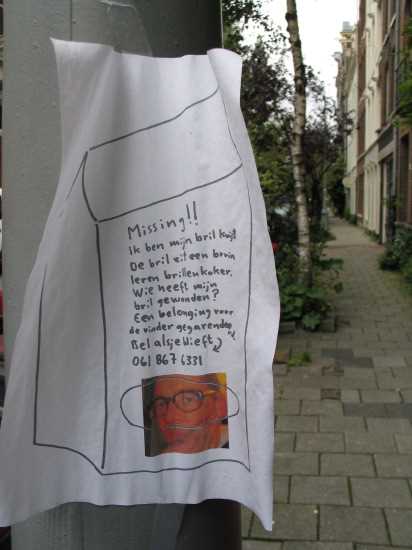 Missing!!
Ik ben mijn bril kwijt
De bril zit een bruin
leren brillenkoker.
Wie heeft mijn
bril gewonden?
Een belonging voor
de vinder
Bel alsjeblieft
061 867 6331